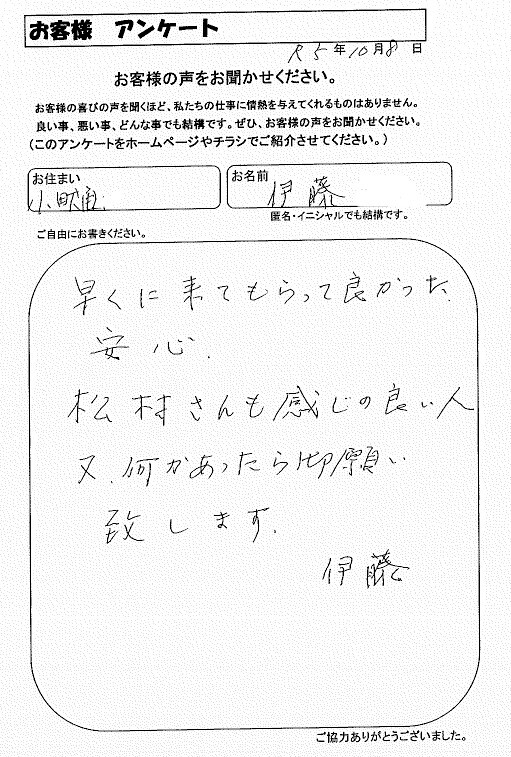 お客様 アンケート
R5年10月8日
お客様の声をお聞かせください。
お客様の喜びの声を聞くほど、私たちの仕事に情熱を与えてくれるものはありません。
良い事、悪い事、どんな事でも結構です。ぜひ、お客様の声をお聞かせください。
(このアンケートをホームページやチラシでご紹介させてください。)
お住まい
お名前
伊藤
匿名・イニシャルでも結構です。
ご自由にお書きください。
早くに来てもらって良かった.
安心.
松村さんも感じの良い人
又.何かあったら御願い
致します.
伊藤
ご協力ありがとうございました。